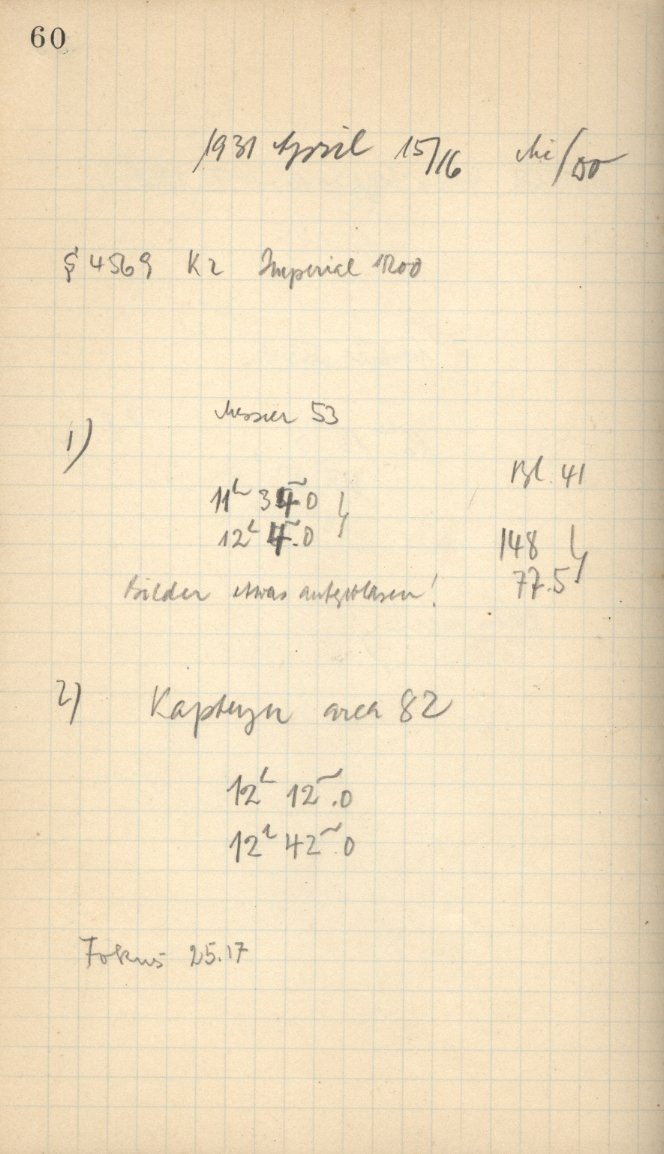 60
1931 April 15/16 Mi/Do
S 4569 K2 Imperial 1200
Messier 53
1)
Bl. 41
11h 34m 0
12h 4m.0
148
77.5
Bilder etwas aufgeblasen!
2) Kapteyn area 82
12h 12m.0
12h 42m.0
Fokus 25.17